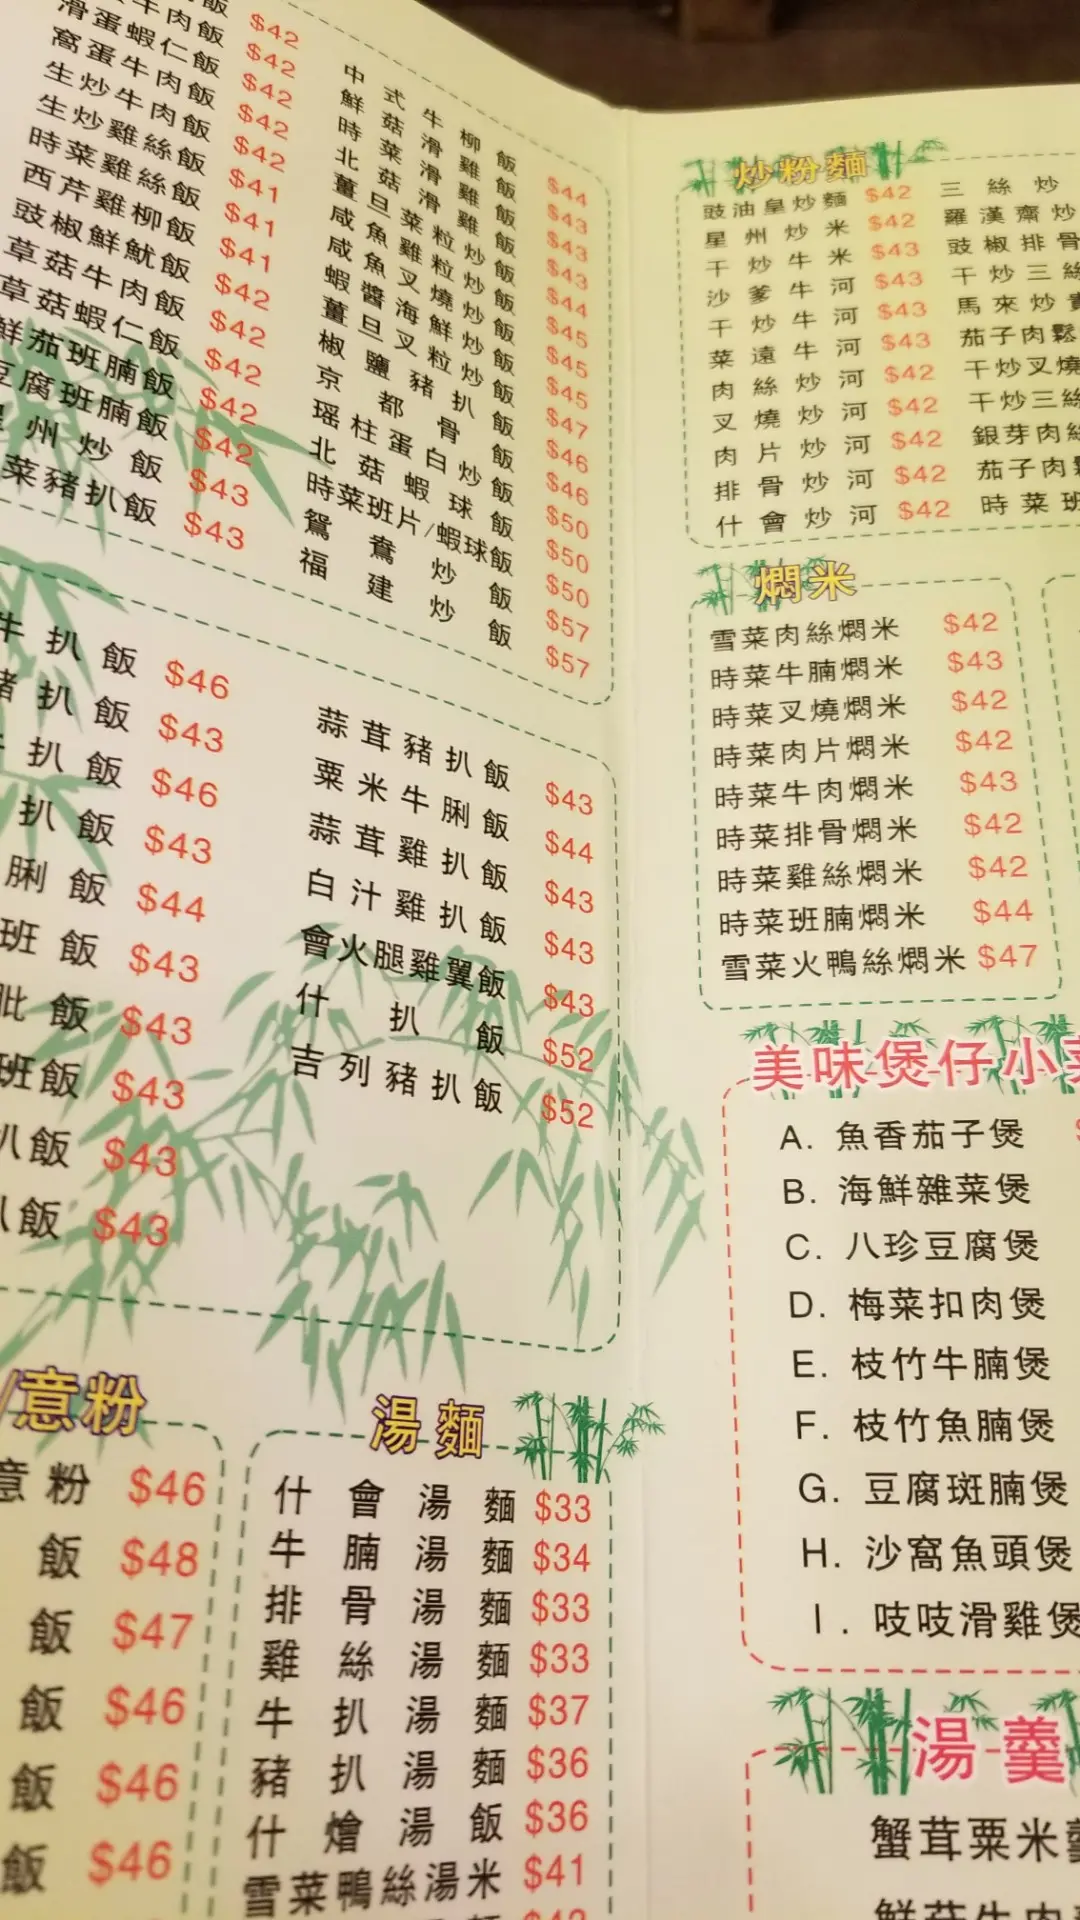 飯
牛肉飯 $42
滑蛋蝦仁飯 $42
窩蛋牛肉飯 $42
生炒牛肉飯 $42
生炒雞絲飯 $42
時菜雞絲飯 $41
西芹雞柳飯 $41
豉椒鮮魷飯 $41
草菇牛肉飯 $42
草菇蝦仁飯 $42
鮮茄班腩飯 $42
豆腐班腩飯 $42
州炒飯 $42
菜豬扒飯 $43
$43
中式牛柳飯 $44
鮮菇滑雞飯 $43
時菜滑雞飯 $43
北菇滑雞飯 $43
薑旦菜粒炒飯 $44
咸魚雞粒炒飯 $45
咸魚叉燒炒飯 $45
蝦醬海鮮炒飯 $45
薑旦叉粒炒飯 $47
椒鹽豬扒飯 $46
京都骨飯 $46
瑤柱蛋白炒飯 $50
北菇蝦球飯 $50
時菜班片/蝦球飯 $50
鴛鴦炒飯 $57
福建炒飯 $57
牛扒飯 $46
豬扒飯 $43
扒飯 $46
扒飯 $43
脷飯 $44
班飯 $43
肶飯 $43
班飯 $43
扒飯 $43
扒飯 $43
蒜茸豬扒飯 $43
粟米牛脷飯 $44
蒜茸雞扒飯 $43
白汁雞扒飯 $43
會火腿雞翼飯 $43
什扒飯 $52
吉列豬扒飯 $52
/意粉
意粉 $46
飯 $48
飯 $47
飯 $46
飯 $46
飯 $46
湯麵
什會湯麵 $33
牛腩湯麵 $34
排骨湯麵 $33
雞絲湯麵 $33
牛扒湯麵 $37
豬扒湯麵 $36
什燴湯飯 $36
雪菜鴨絲湯米 $41
炒粉麵
豉油皇炒麵 $42
星州炒米 $42
干炒牛米 $43
沙爹牛河 $43
干炒牛河 $43
菜遠牛河 $43
肉絲炒河 $42
叉燒炒河 $42
肉片炒河 $42
排骨炒河 $42
什會炒河 $42
三絲炒
羅漢齋炒
豉椒排骨
干炒三絲
馬來炒貴
茄子肉鬆
干炒叉燒
干炒三絲
銀芽肉絲
茄子肉鬆
時菜班
燜米
雪菜肉絲燜米 $42
時菜牛腩燜米 $43
時菜叉燒燜米 $42
時菜肉片燜米 $42
時菜牛肉燜米 $43
時菜排骨燜米 $42
時菜雞絲燜米 $42
時菜班腩燜米 $44
雪菜火鴨絲燜米 $47
美味煲仔小菜
A. 魚香茄子煲
B. 海鮮雜菜煲
C. 八珍豆腐煲
D. 梅菜扣肉煲
E. 枝竹牛腩煲
F. 枝竹魚腩煲
G. 豆腐斑腩煲
H. 沙窩魚頭煲
I. 吱吱滑雞煲
湯羹
蟹茸粟米羹
鮮菇牛肉